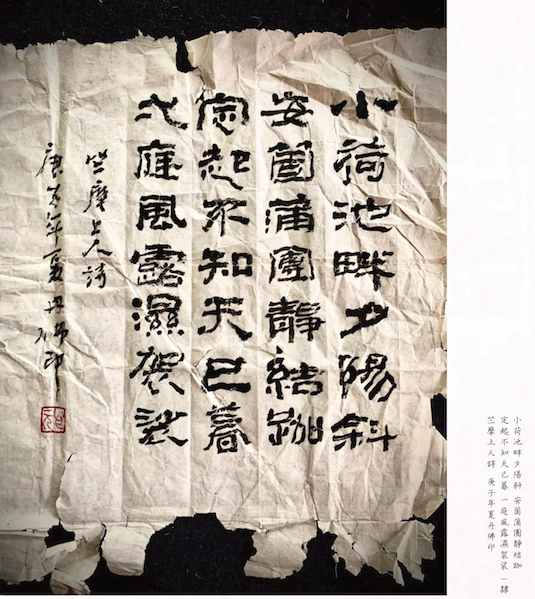 小荷池畔夕陽斜
安箇蒲團靜結跏
定起不知天已暮
弌庭風露濕袈裟
竺摩上人詩
庚子年夏丹佛印
小荷池畔夕陽斜 安箇蒲團靜結跏
定起不知天已暮 一庭風露濕袈裟—隸
竺摩上人詩 庚子年夏丹佛印